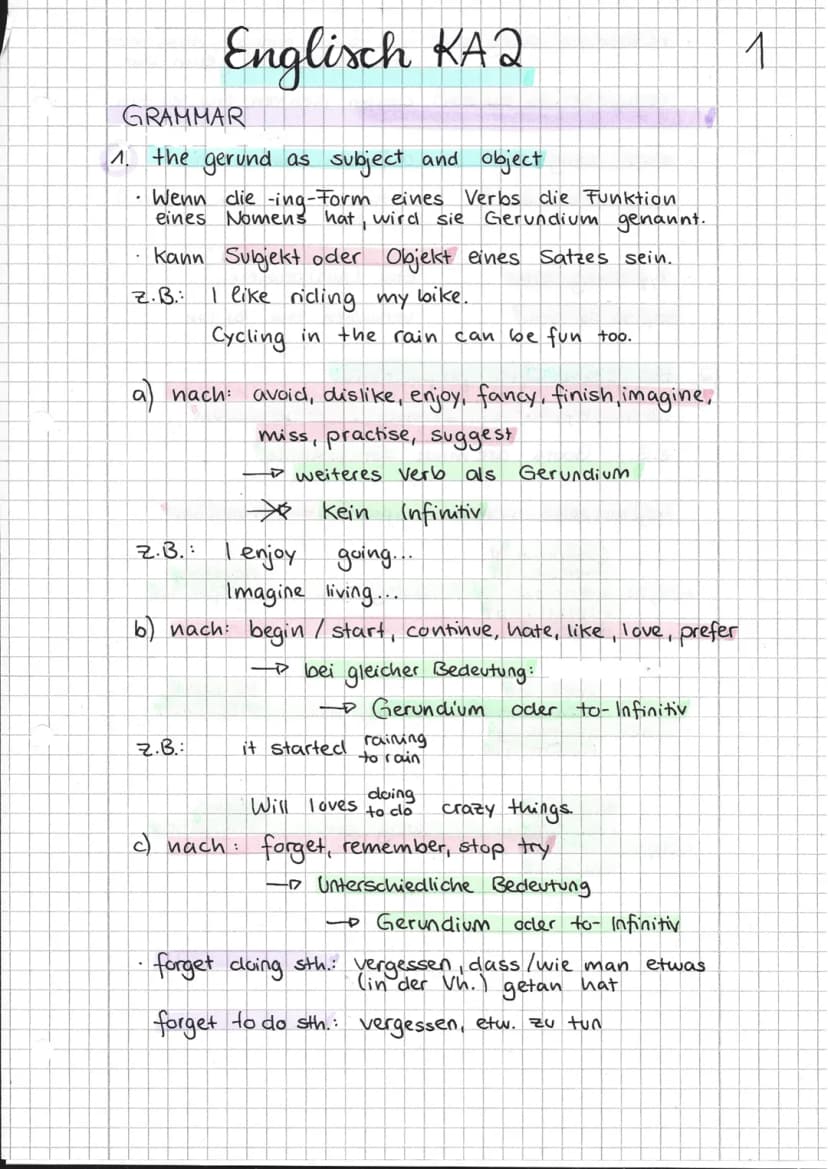 Englisch KA2
1
GRAMMAR
1. the gerund as subject and object
· Wenn die -ing-Form eines Verbs die Funktion
eines Nomens hat, wird sie Gerundium genannt.
· kann Subjekt oder Objekt eines Satzes sein.
z.B.: I like riding my bike.
Cycling in the rain can be fun too.
a) nach: avoid, dislike, enjoy, fancy, finish, imagine,
miss, practise, suggest
→ weiteres Verb als Gerundium
→ kein Infinitiv
z.B.: I enjoy going...
Imagine living...
b) nach: begin / start, continue, hate, like, love, prefer
→ bei gleicher Bedeutung:
→ Gerundium oder to-Infinitiv
z.B.: it started raining
to rain
Will loves doing
to do crazy things.
c) nach: forget, remember, stop try
→ Unterschiedliche Bedeutung
→ Gerundium oder to-Infinitiv
· forget doing sth.: vergessen, dass/wie man etwas
(in der Vh.) getan hat
forget to do sth.: vergessen, etw. zu tun